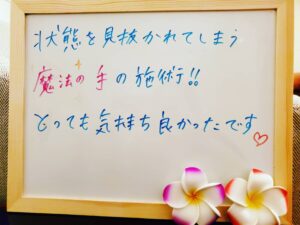 状態を見抜かれてしまう
魔法の手の施術!!
とっても気持ち良かったです♡